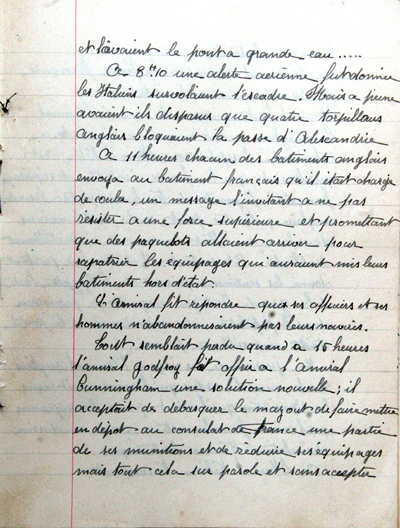 et lavaient le pont a grande eau .....
A 8 h 10 une alerte aérienne fut donnée
les Italiens survolaient l'escadre. Mais a peine
avaient ils disparus que quatre torpilleurs
anglais bloquaient la passe d'Alescandrie
A 11 heures chacun des batiments anglais
envoya au batiment français qu'il était chargé
de couler, un message l'invitant a ne pas
résister a une force supérieure et promettant
que des paquebots allaient arriver pour
rapatrier les équipages qui auraient mis leurs
batiments hors d'état.
L'Amiral fit répondre que ses officiers et ses
hommes n'abandonneraient pas leurs navires.
Tout semblait perdu quand a 15 heures
l'amiral godfroy fit offrir a l'Amiral
Cunningham une solution nouvelle; il
acceptait de débarquer le mazout de faire mettre
en dépot au consulat de France une partie
de ses munitions et de réduire ses équipages
mais tout cela sur parole et sans accepter